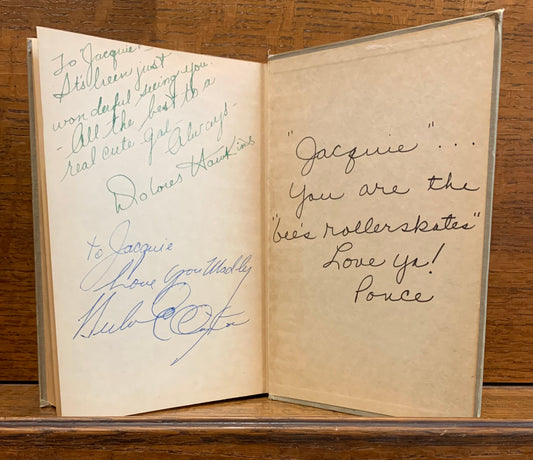 To Jacquie! -
It's been just
wonderful seeing you.
- All the best to a
real cute gal -
Always -
Dolores Hawkins
to Jacquie
Love you Madley
"Jacquie"...
You are the
"bee's rollerskates"
Love ya!
Ponce